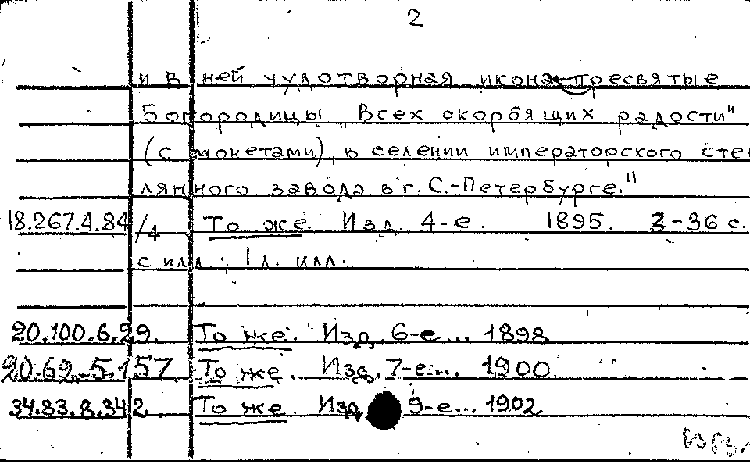 2
и в ней чудотворная икона пресвятые
Богородицы Всех скорбящих радости"
(с монетами), в селении императорского стек
лянного завода в г. С.-Петербурге."
18.267.4.84/4 То же. Изд. 4-е. 1895. 2-36 с.
с илл. 1 л. илл.
20.100.6.29. То же. Изд. 6-е... 1898
20.62.5.157 То же. Изд. 7-е... 1900
34.83.8.342. То же. Изд. 9-е... 1902